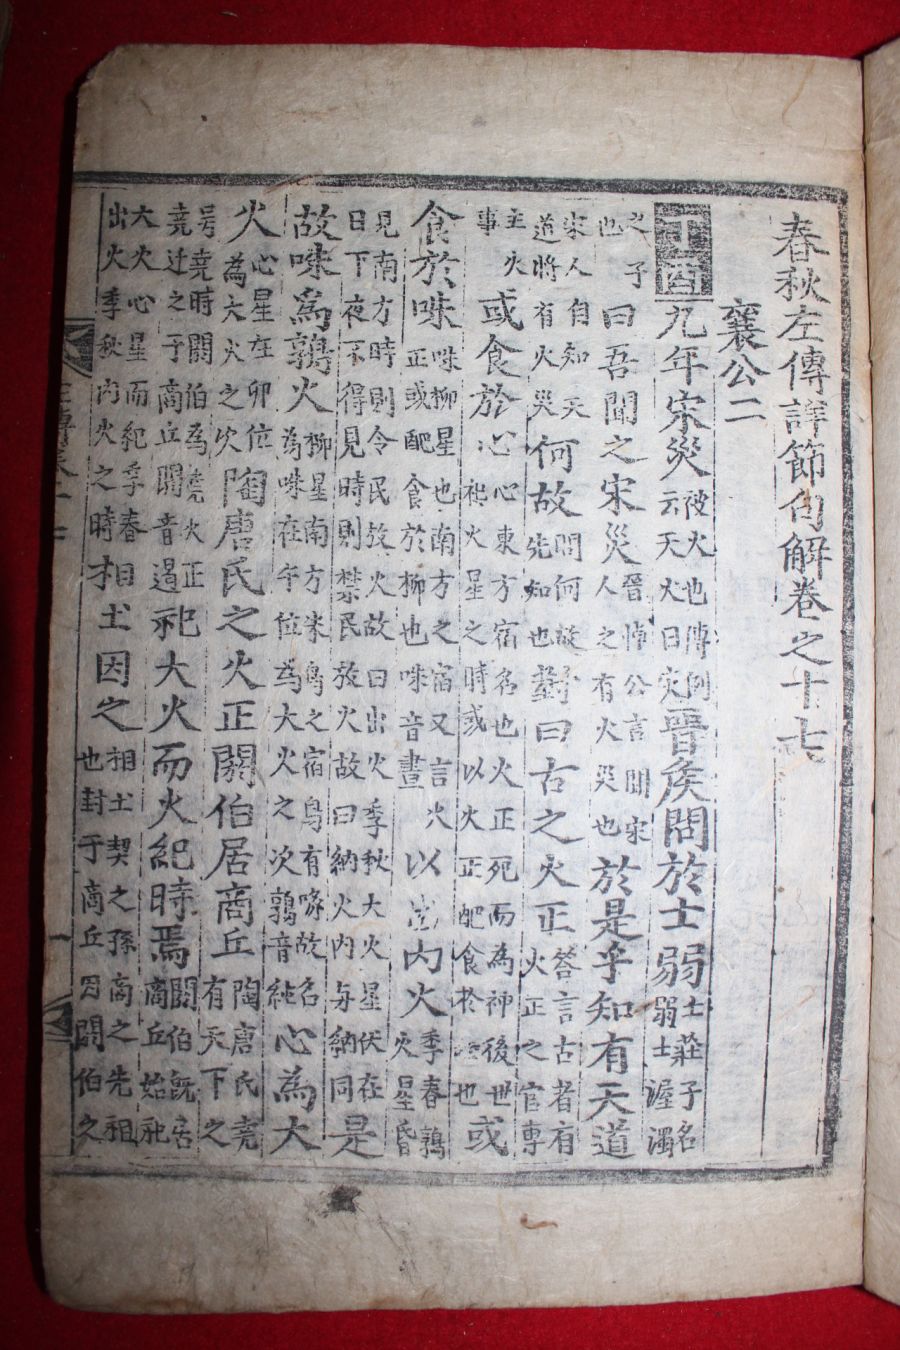 春秋左傳詳節句解卷之十七
襄公二
丁酉九年宋災被火也傳例云天火曰災晉侯問於士弱士莊子名弱士渥濁
之子也曰吾聞之宋災晉悼公言聞宋人之有火災也於是乎知有天道
宋人自知天道將有火災何故問何故先知也對曰古之火正答言古者有火正之官專
主火事或食於心心東方宿名也火正死而為神後世祀火星之時或以火正配食於心也或
食於咮咮柳星也南方之宿又言火正或配食於柳也咮音晝以出內火季春鶉火星昏
見南方時則令民放火故曰出火季秋大火星伏在日下夜不得見時則禁民放火故曰納火內与納同是
故咮爲鶉火柳星南方朱鳥之宿鳥有喙故名為咮在午位為大火之次鶉音純心為大
火心星在卯位為大火之次陶唐氏之火正閼伯居商丘陶唐氏堯有天下之
号堯時閼伯為堯火正堯迁之于商丘閼音遏祀大火而火紀時焉閼伯既居商丘始祀
大火心星而紀季春出火季秋內火之時相土因之相土契之孫商之先祖也封于商丘因閼伯之